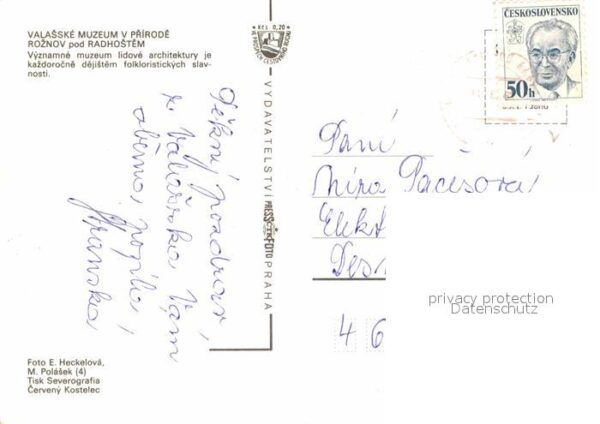 VALAŠSKÉ MUZEUM V PŘÍRODĚ
ROŽNOV pod RADHOŠTĚM
Významné muzeum lidové architektury je
každoročně dějištěm folkloristických slav-
ností.
Pěkný pozdrav
z Valašska Vám
všema posílá
Foto E. Heckelová,
M. Polášek (4)
Tisk Severografia
Červený Kostelec
Kčs 0,20
VYDAVATELSTVÍ PRESSFOTO PRAHA
ČESKOSLOVENSKO
50h
Paní
Pacešová
Elekt
Des
46
privacy protection
Datenschutz